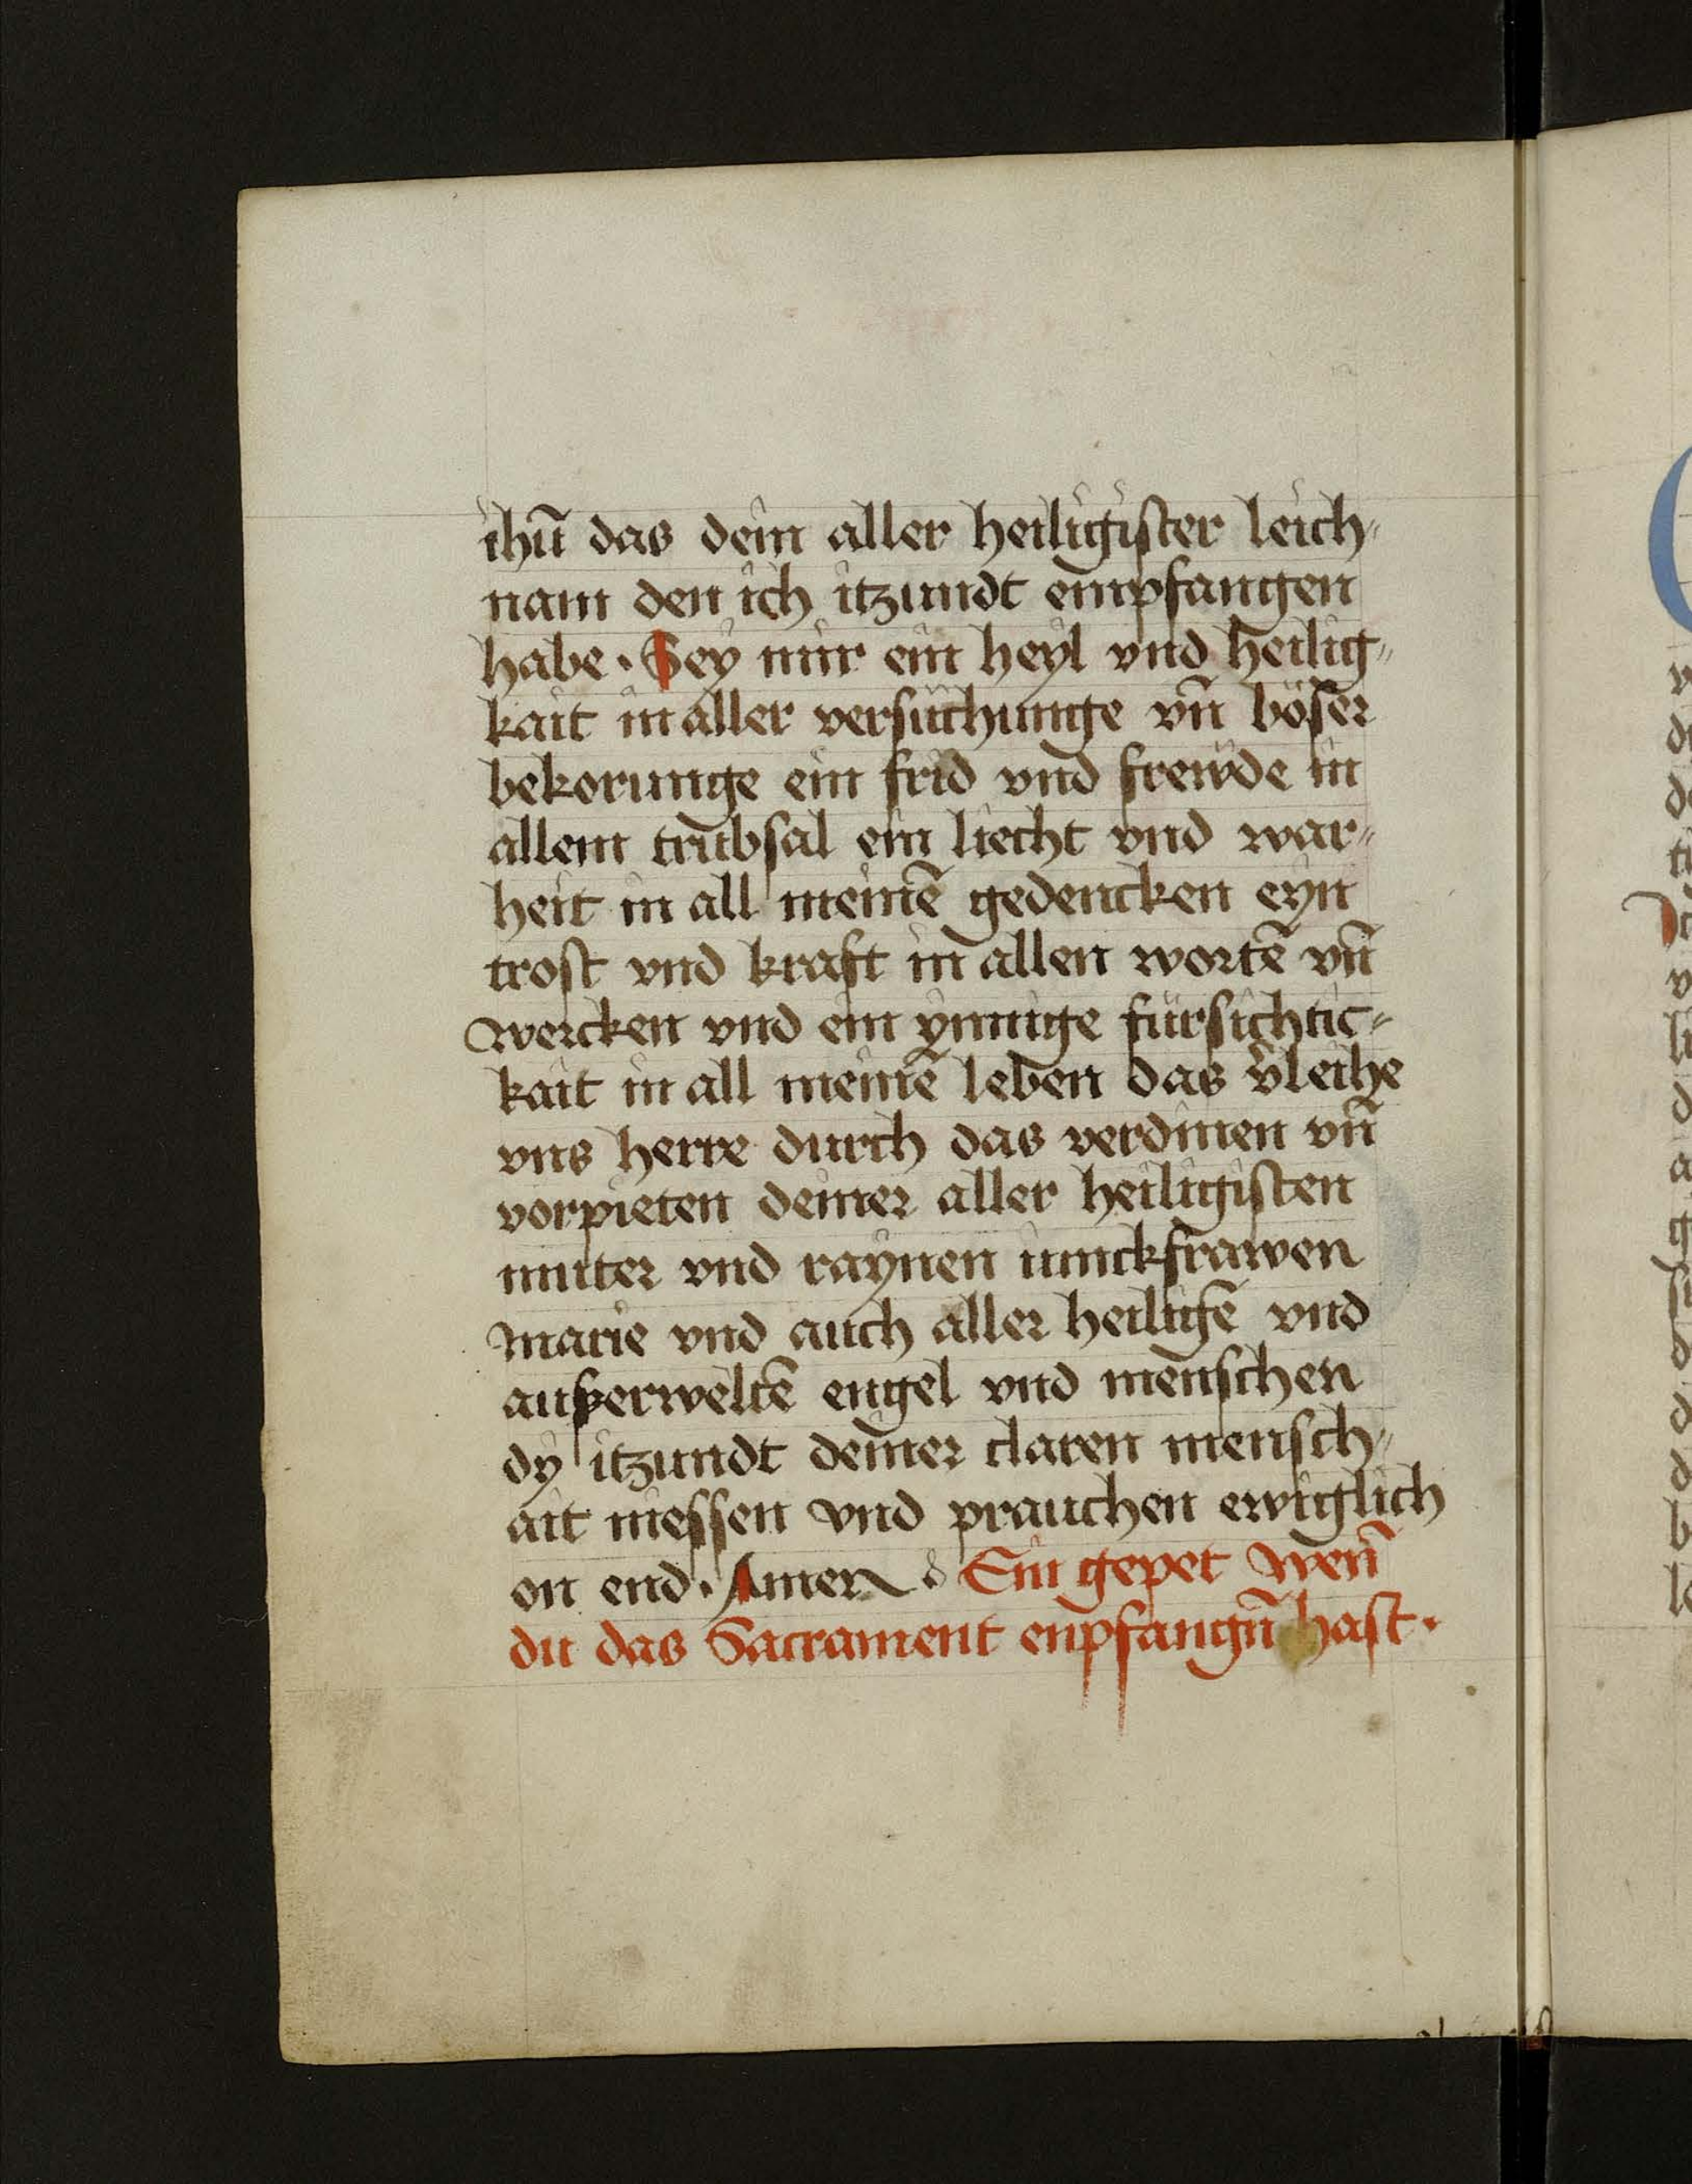 ihū das dein aller heiligister leich⸗
nam den ich itzundt empfangen
habe · Sey mir ein heyl vnd heilig⸗
kait in aller versuchunge vn̄ böser
bekorunge ein frid vnd frewde in
allem trübsal ein liecht vnd war⸗
heit in all meinē gedencken eyn
trost vnd kraft in allen wortē vn̄
wercken vnd ein ynnige fürsichtic⸗
kait in all meinē leben das v̄leihe
vns herre durch das verdinen vn̄
vorpieten deiner aller heiligisten
muter vnd raynen iunckfrawen
marie vnd auch aller heiligē vnd
außerweltē engel vnd menschen
dy itzundt deiner claren mensch⸗
ait niessen vnd prauchen ewiglich
on end · Amen · Ein gepet wen̄
du das Sacrament enpfangn̄ hast ·